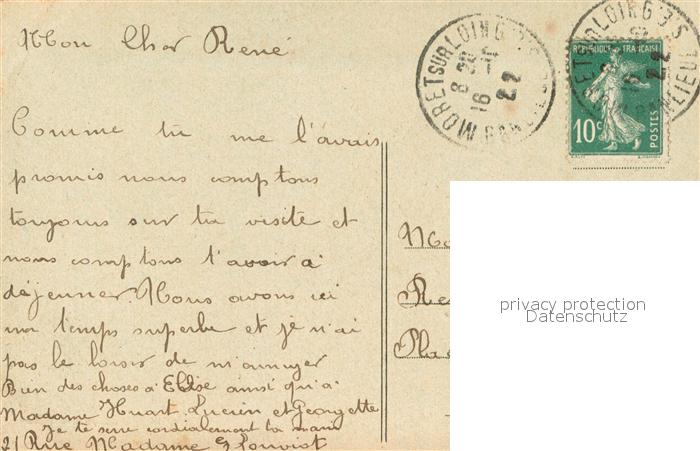 Mon Cher René
Comme tu me l'avais
promis nous comptons
toujours sur ta visite et
nous comptons t'avoir à
déjeuner. Nous avons ici
un temps superbe et je n'ai
pas le loisir de m'ennuyer
Bien des choses à Elise ainsi qu'à
Madame Huart Lucien et Georgette
Je te serre cordialement la main
21 Rue Madame G Louviot
MORET SUR LOING
8 30
16 - 11
22
REPUBLIQUE FRANÇAISE
10c
POSTES
privacy protection
Datenschutz